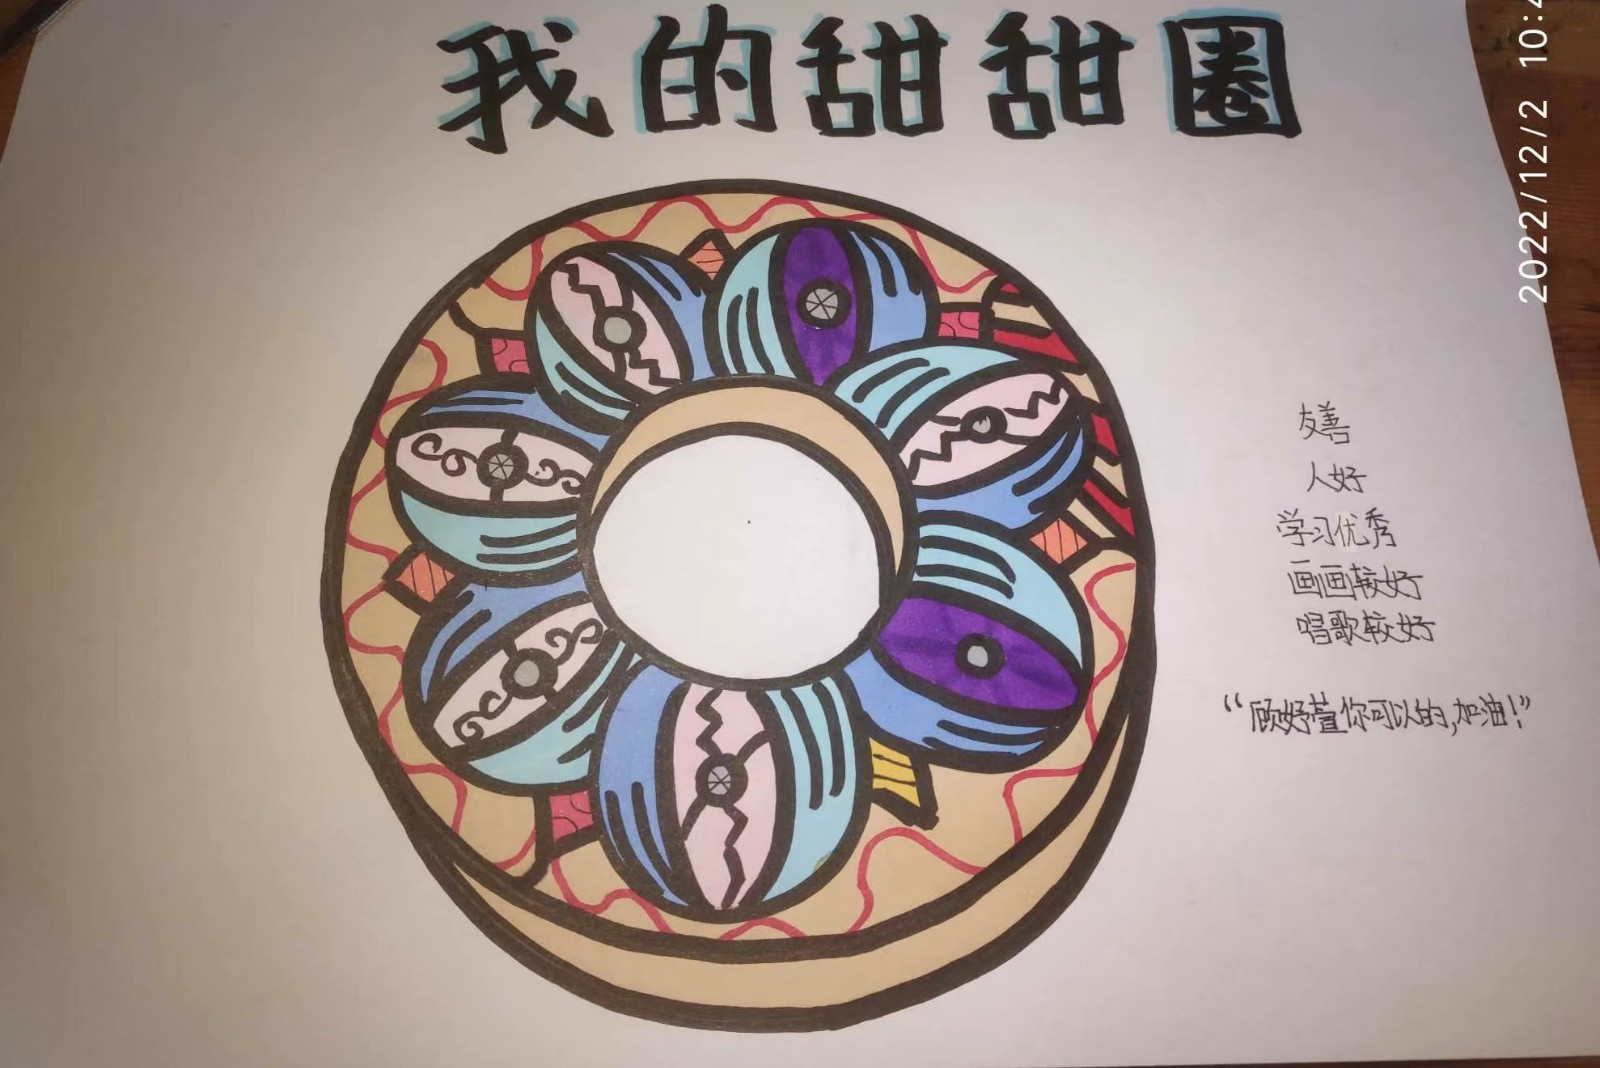 我的甜甜圈
友善
人好
学习优秀
画画较好
唱歌较好
“顾妤萱你可以的,加油!”
2022/12/2 10:4